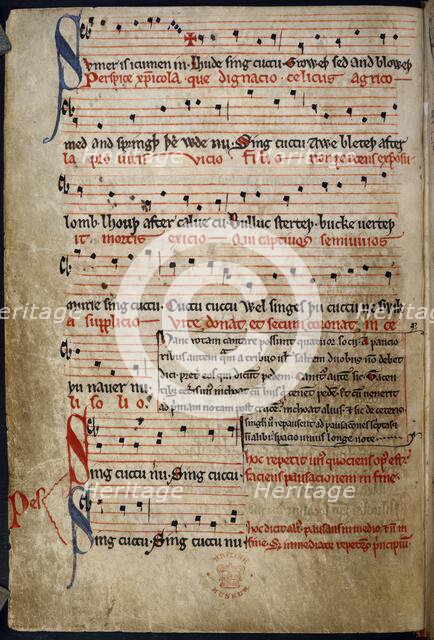 Sumer is icumen in Lhude sing cuccu Groweþ sed and bloweþ
Perspice xp̄icola que dignacio celicus agrico
med and springþ þe wde nu Sing cuccu Awe bleteþ after
la pro uitis vicio filio non parcens exposu
lomb lhouþ after calue cu Bulluc sterteþ bucke uerteþ
it mortis exicio Qui captiuos semiuiuos
murie sing cuccu Cuccu cuccu Wel singes þu cuccu ne swik
a supplicio Vite donat et secum coronat in ce
þu nauer nu
li solio
Hanc rotam cantare possunt quatuor socii A paucio
ribus autem quam a tribus uel saltem duobus non debet
dici preter eos qui dicunt pedem Canitur autem sic Tacen
tibus ceteris unus inchoat cum hiis qui tenent pedem Et cum uenerit
ad primam notam post crucem inchoat alius et sic de ceteris
singuli uero repausent ad pausaciones scriptas et
non alibi spacio unius longe note
Sing cuccu nu Sing cuccu
hoc repetit unus quociens opus est
faciens pausacionem in fine
Pes
Sing cuccu Sing cuccu nu
hoc dicit alius pausans in medio et non in
fine Set immediate repetens principium
BRITISH MUSEUM
Heritage
Heritage
Heritage
Heritage
Heritage
Heritage